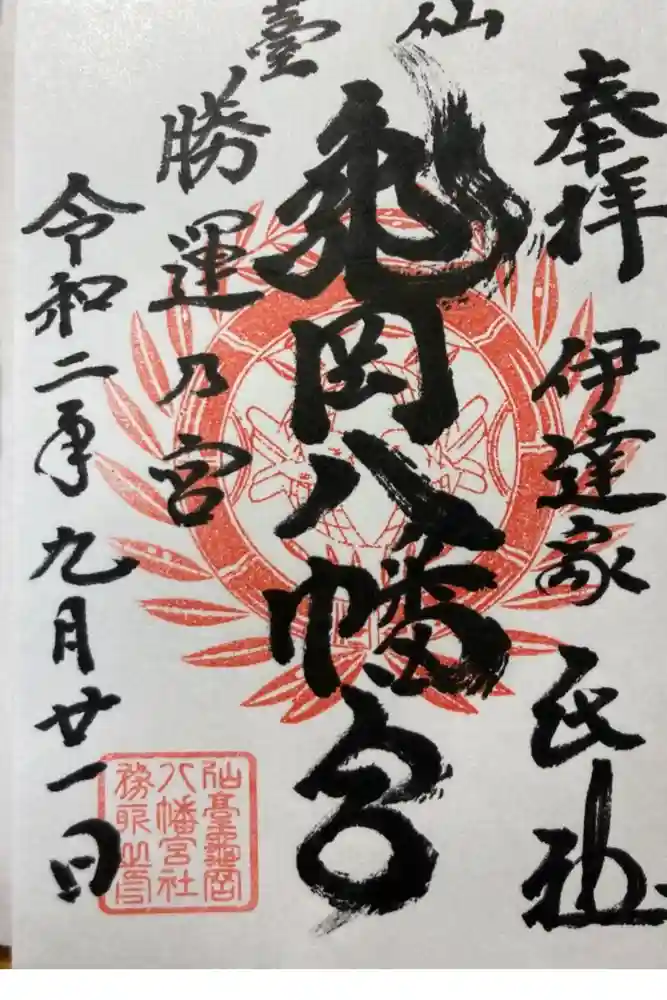 奉拝
伊達家氏社
仙臺
亀岡八幡宮
勝運乃宮
令和二年九月廿一日
仙臺亀岡
八幡宮社
務所之印